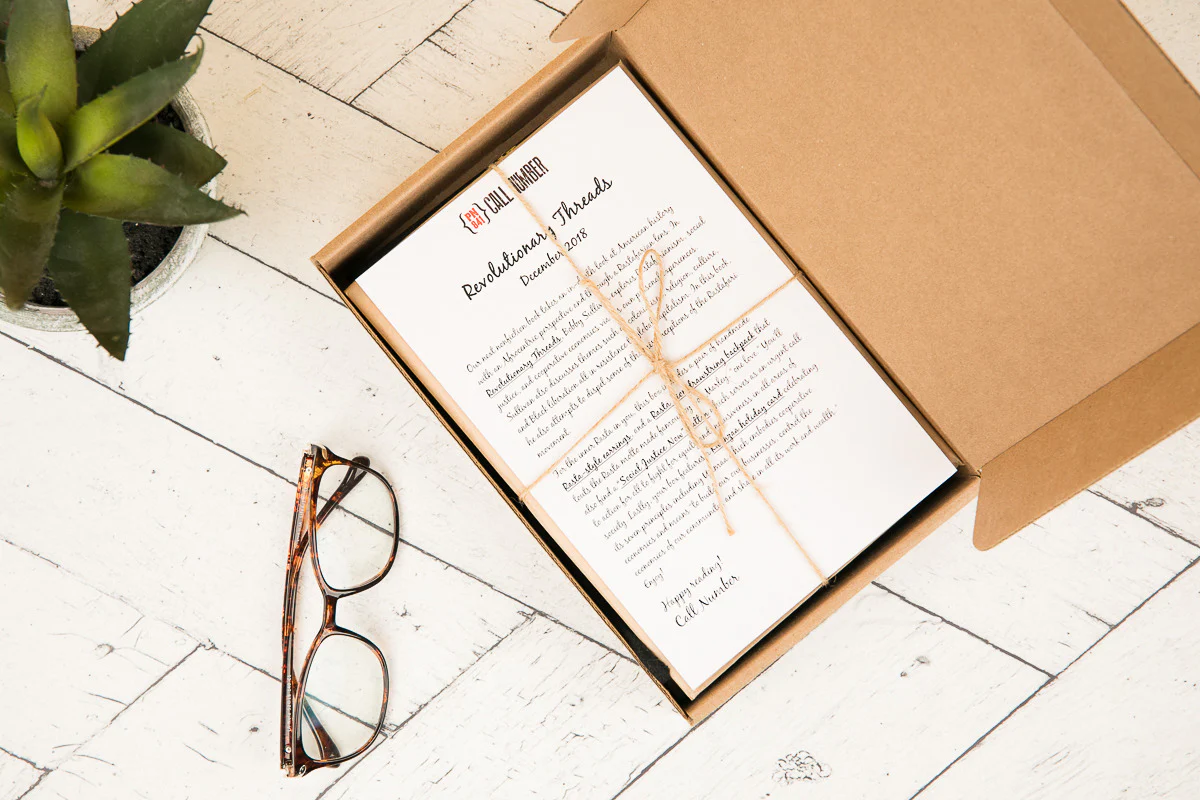 {PN 841} CALL NUMBER
Revolutionary Threads
December 2018
Our next nonfiction book takes an in depth look at American history
with an Afrocentric perspective and through a Rastafarian lens. In
Revolutionary Threads, Bobby Sullivan explores Rastafarianism, social
justice, and cooperative economics via our personal experiences.
Sullivan also discusses themes such colonialism, religion, culture,
and Black liberation all in resistance global capitalism. In this book,
he also attempts to dispel some of the misconceptions of the Rastafari
movement.
For the inner Rasta in you, this box includes a pair of handmade
Rasta-style earrings and a Rasta drawstring backpack that
touts the Rasta motto made famous by Marley, "one love." You'll
also find a "Social Justice Now" which serves as an urgent call
to action for all to fight for equality and inclusiveness in all areas of
society. Lastly, your box features Kwanzaa holiday card celebrating
its seven principles including Ujamaa, which embodies cooperative
economics and means "to build our own businesses, control the
economics of our community and share in all its work and wealth."
Enjoy!
Happy reading!
Call Number